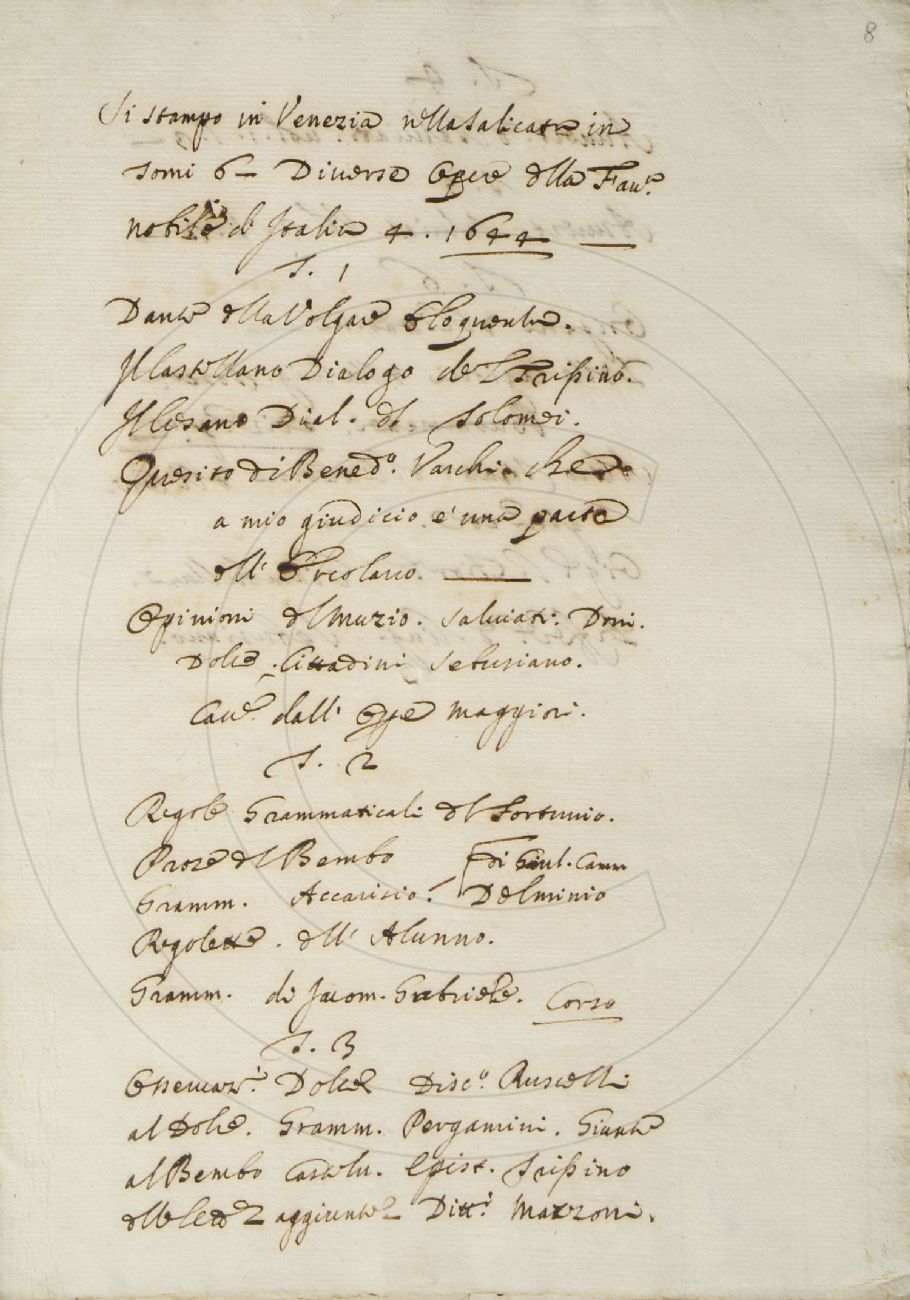 8
Si stampò in Venezia nella Salicata in
tomi 6 — Diverse Opere della Fav.ª
nobile d'Italia 4. 1644 —
T. 1
Dante della Volgare Eloquenza.
Il Castellano Dialogo del Trissino.
Il Cesano Dial. del Tolomei.
Quesito di Bened.º Varchi che
a mio giudicio è una parte
dell' Ercolano. —
Opinioni del Muzio. Salviati. Doni.
Dolce. Cittadini
Cav.e dall' Opre maggiori.
T. 2
Regole Grammaticali del Fortunio.
Prose del Bembo di Giul. Cam.
Gramm. Accarisio. Delminio
Regolette. dell' Alunno.
Gramm. di Jacom. Gabriele. Corso
T. 3
Osservaz.i Dolce Disc.º Ruscelli
al Dolce. Gramm. Pergamini. Giunte
al Bembo Castelv. Epist. Trissino
delle lett.e aggiunte Ditt.i Mazzoni.